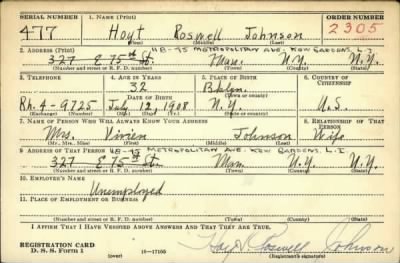 SERIAL NUMBER 1. NAME (Print) ORDER NUMBER
477 Hoyt Roswell Johnson 2305
(First) (Middle) (Last)
2. ADDRESS (Print) 118-95 METROPOLITAN AVE. KEW GARDENS. L.I.
327 E 75th St. Man. N.Y. N.Y.
(Number and street or R. F. D. number) (Town) (County) (State)
3. TELEPHONE 4. AGE IN YEARS 5. PLACE OF BIRTH 6. COUNTRY OF CITIZENSHIP
32 Bklyn.
DATE OF BIRTH (Town or county)
Rh. 4-9725 July 12, 1908 N.Y. U.S.
(Exchange) (Number) (Mo.) (Day) (Yr.) (State or country)
7. NAME OF PERSON WHO WILL ALWAYS KNOW YOUR ADDRESS 8. RELATIONSHIP OF THAT PERSON
Mrs. Vivien Johnson Wife
(Mr., Mrs., Miss) (First) (Middle) (Last)
9. ADDRESS OF THAT PERSON 118-95 METROPOLITAN AVE. KEW GARDENS. L.I.
327 E 75th St. Man. N.Y. N.Y.
(Number and street or R. F. D. number) (Town) (County) (State)
10. EMPLOYER'S NAME
Unemployed
11. PLACE OF EMPLOYMENT OR BUSINESS
(Number and street or R. F. D. number) (Town) (County) (State)
I AFFIRM THAT I HAVE VERIFIED ABOVE ANSWERS AND THAT THEY ARE TRUE.
REGISTRATION CARD
D. S. S. Form 1 (over) 16-17105 Hoyt Roswell Johnson
(Registrant's signature)